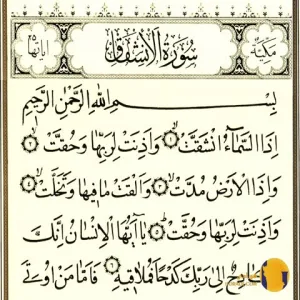 مكية سورة الانشقاق آياتها ٢٥
بِسْمِ اللَّهِ الرَّحْمَٰنِ الرَّحِيمِ
إِذَا السَّمَاءُ انشَقَّتْ ١ وَأَذِنَتْ لِرَبِّهَا وَحُقَّتْ ٢
وَإِذَا الْأَرْضُ مُدَّتْ ٣ وَأَلْقَتْ مَا فِيهَا وَتَخَلَّتْ ٤
وَأَذِنَتْ لِرَبِّهَا وَحُقَّتْ ٥ يَا أَيُّهَا الْإِنسَانُ إِنَّكَ
كَادِحٌ إِلَىٰ رَبِّكَ كَدْحًا فَمُلَاقِيهِ ٦ فَأَمَّا مَنْ أُوتِيَ